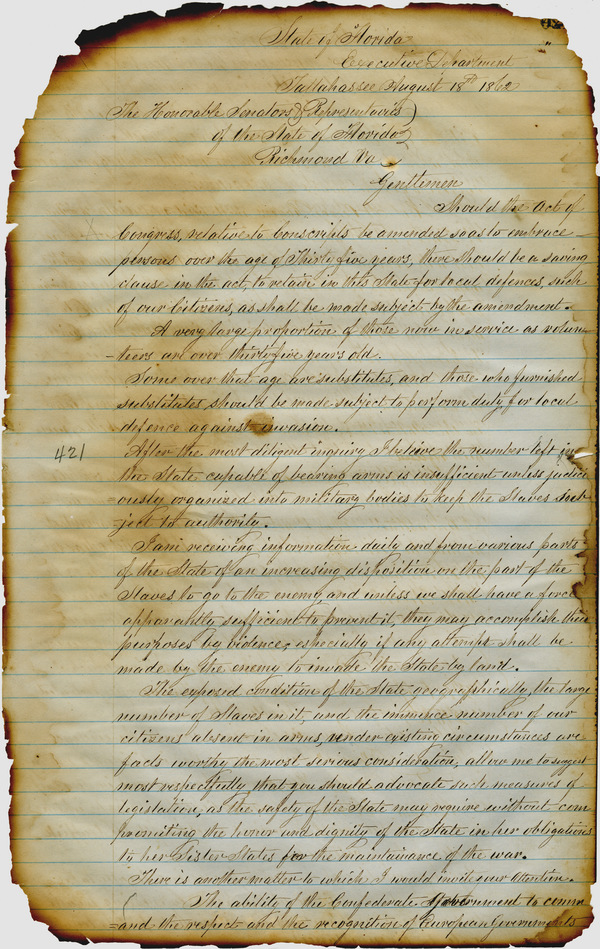 State of Florida
Executive Department
Tallahassee August 18th 1862
The Honorable Senators & Representatives
of the State of Florida
Richmond Va
Gentlemen
Should the Act of
Congress, relative to Conscripts be amended so as to embrace
persons over the age of Thirty five years, there should be a saving
clause in the act to retain in this State for local defences, such
of our Citizens, as shall be made subject by the amendment.
A very large proportion of those now in service as volun-
-teers are over thirty five years old.
Some over that age are substitutes, and those who furnished
substitutes should be made subject to perform duty for local
defence against invasion.
421
After the most diligent inquiry I believe the number left in
the State capable of bearing arms is insufficient unless judici
=ously organized into military bodies to keep the Slaves sub-
=ject to authority.
I am receiving information daily and from various parts
of the State of an increasing disposition on the part of the
Slaves to go to the enemy, and unless we shall have a force
apparantly sufficient to prevent it, they may accomplish their
purposes by violence, especially if any attempt shall be
made by the enemy to invade the State by land.
The exposed condition of the State geographically, the large
number of Slaves in it, and the immence number of our
citizens absent in arms, under existing circumstances are
facts worthy the most serious consideration, allow me to suggest
most respectfully, that you should advocate such measures of
legislation, as the safety of the State may require without com
promiting the honor and dignity of the State in her obligations
to her Sister States for the maintainance of the war.
There is another matter to which I would invite your attention.
The ability of the Confederate Government to comm
=and the respect and the recognition of European Governments